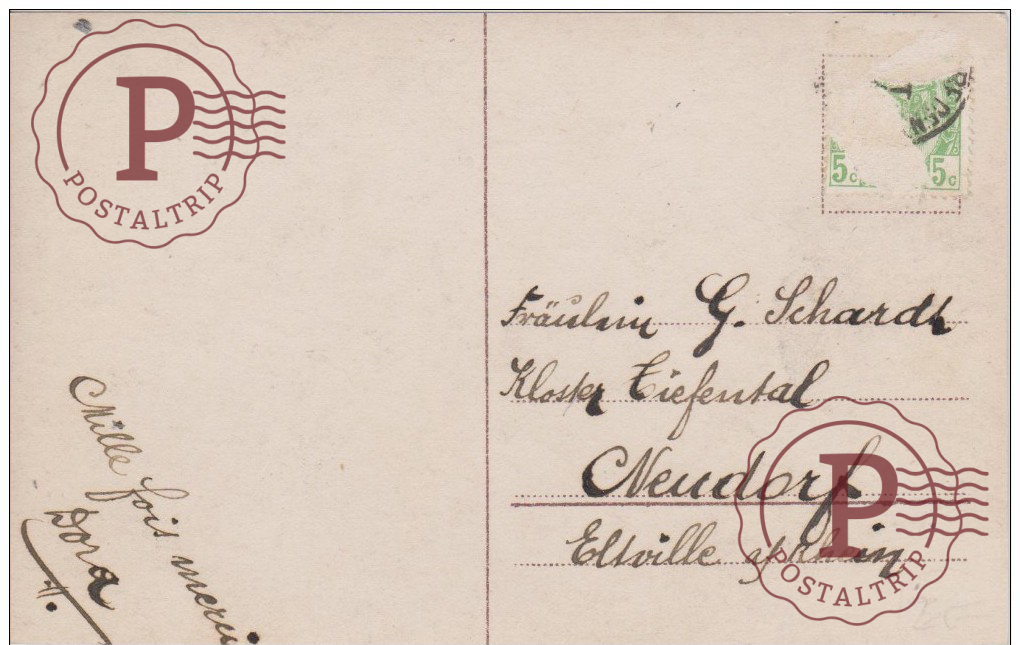 P
POSTALTRIP
5c
5c
Fräulein G. Schardt
Kloster Tiefental
Neudorf
Eltville a/Rhein
P
POSTALTRIP
Mille fois merci
Dora